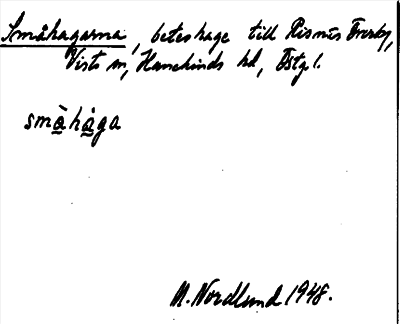 Småhagarna, beteshage till Risnäs Överby,
Vists sn, Hanekinds hd, Östg l.
småhåga
M. Nordlund 1948.